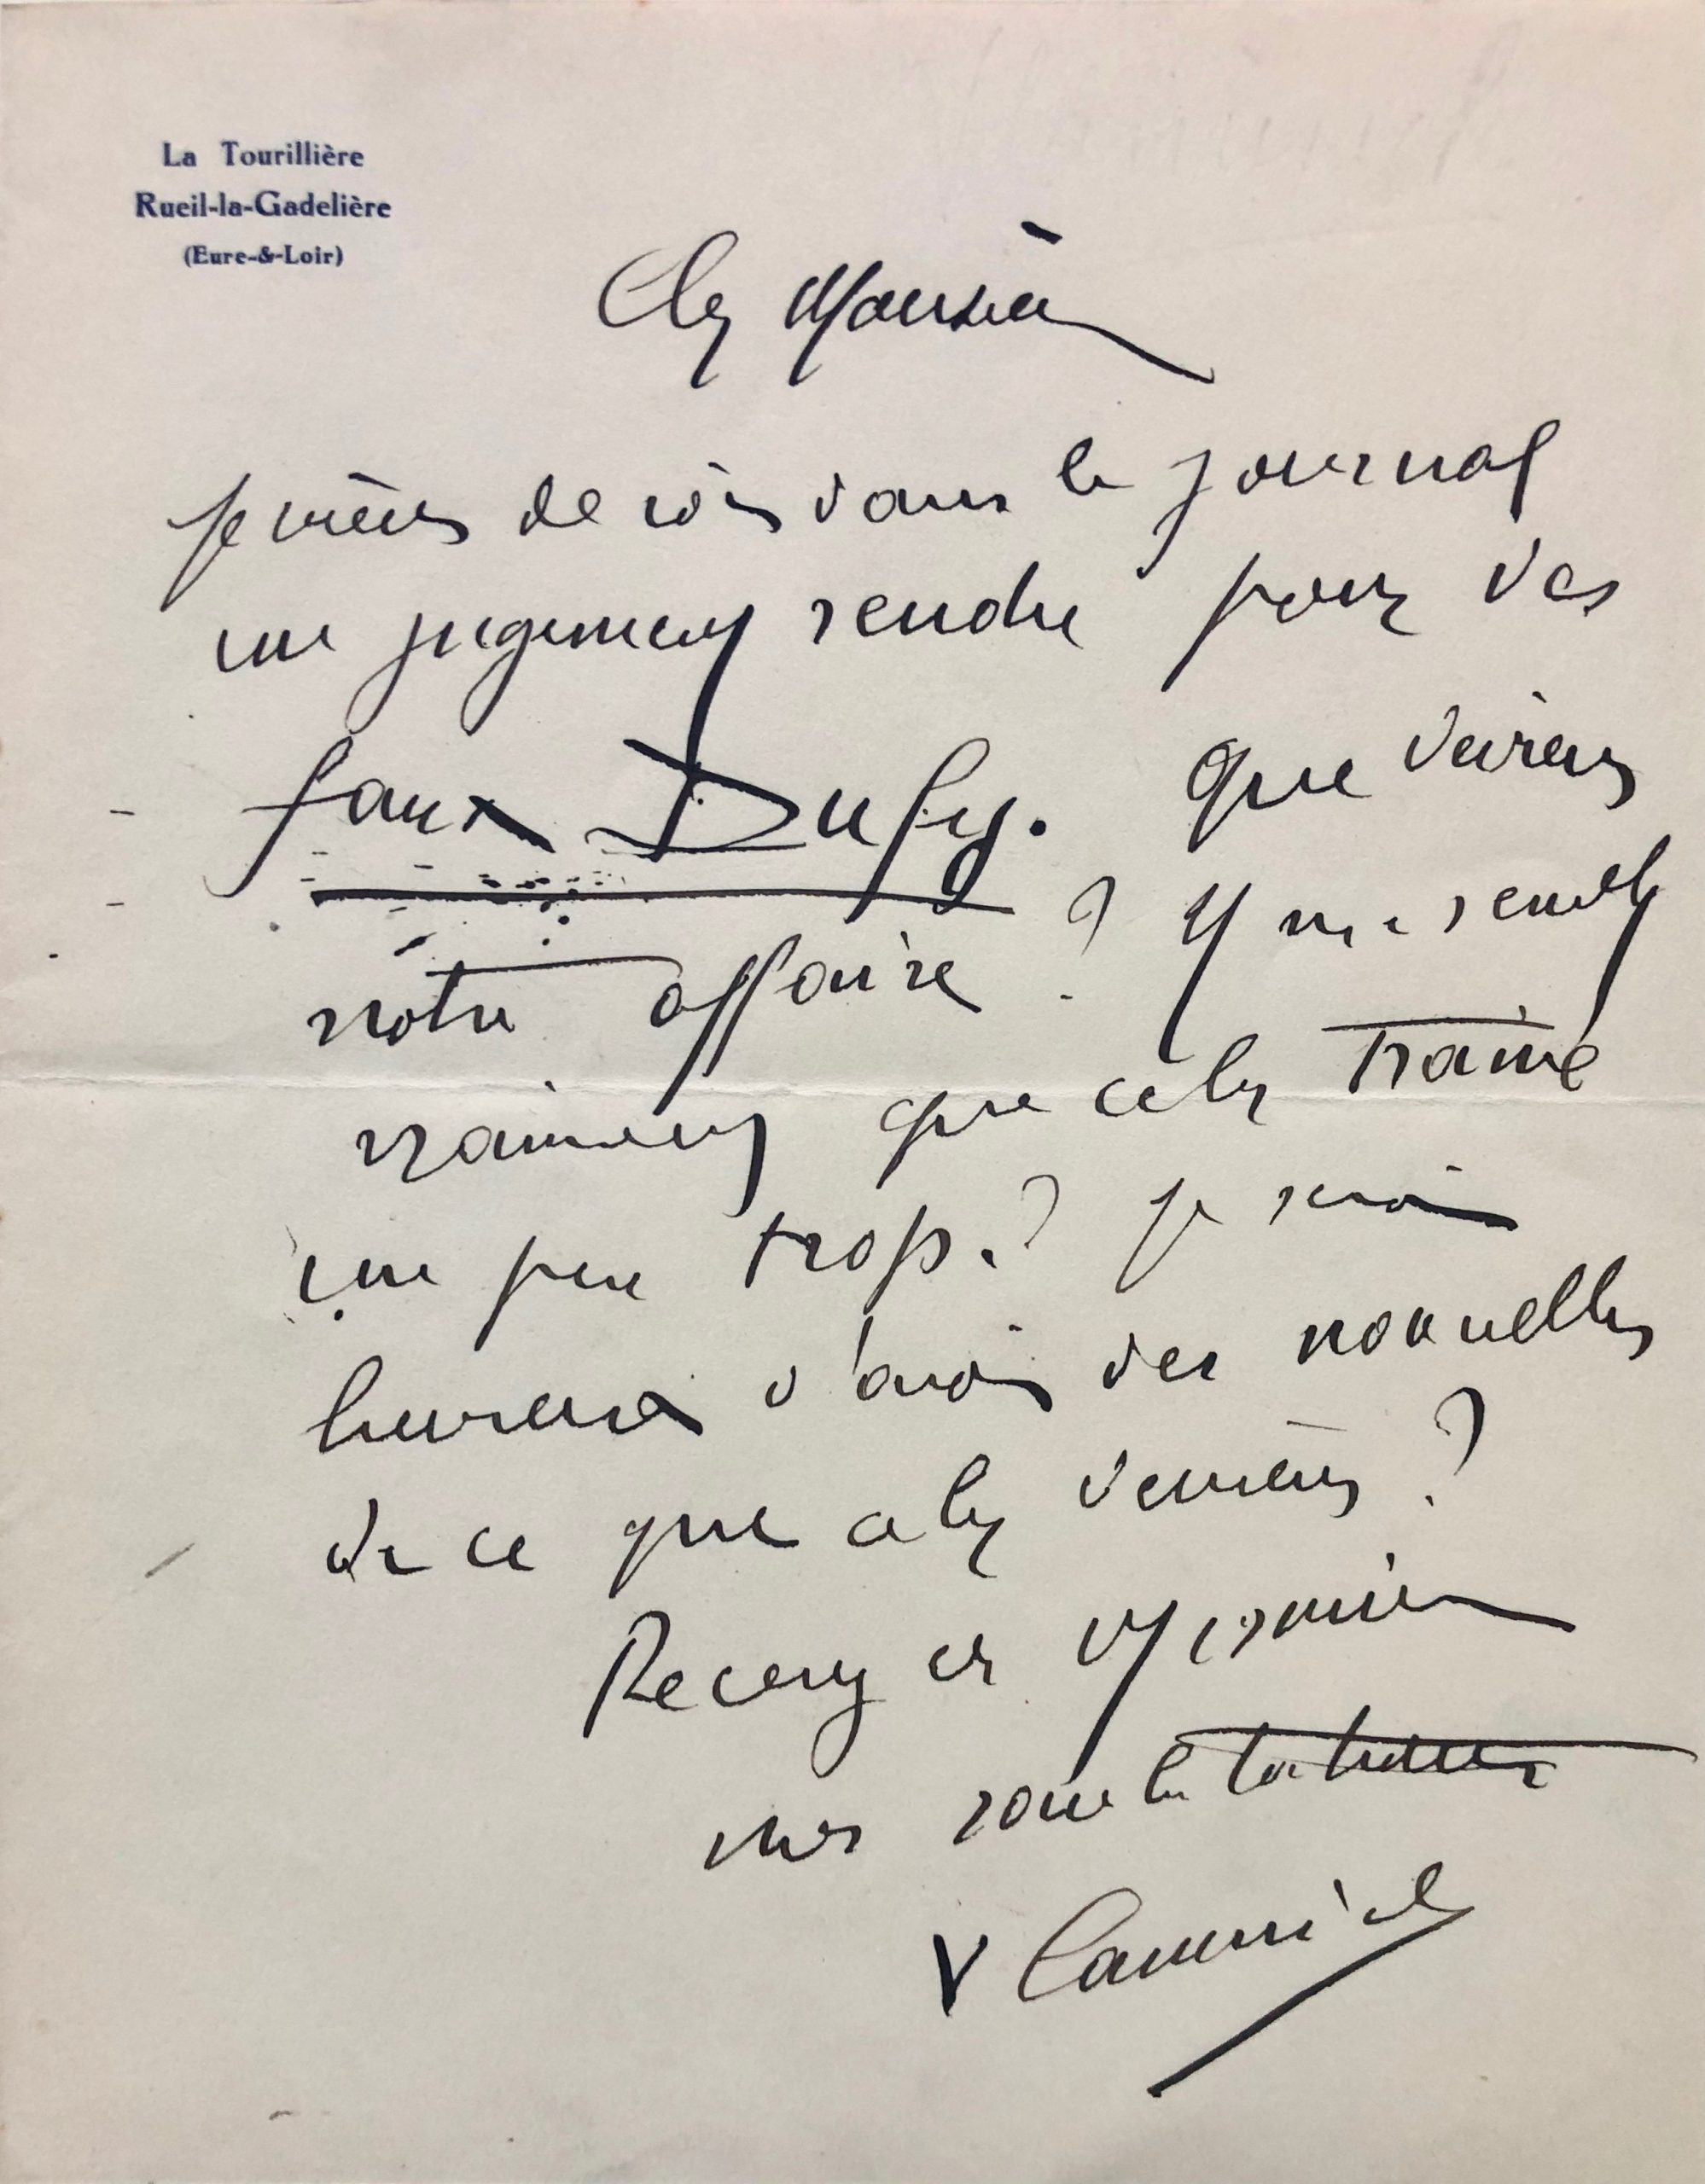 La Tourillière
Rueil-la-Gadelière
(Eure-&-Loir)
Cher Monsieur
je viens de voir dans le journal
un jugement rendu pour des
faux Dufy. que devient
notre affaire ? Il me semble
vraiment que cela traine
un peu trop. ? je serais
heureux d'avoir des nouvelles
de ce que cela devient ?
Recevez cher Monsieur
mes salutations
Vlaminck